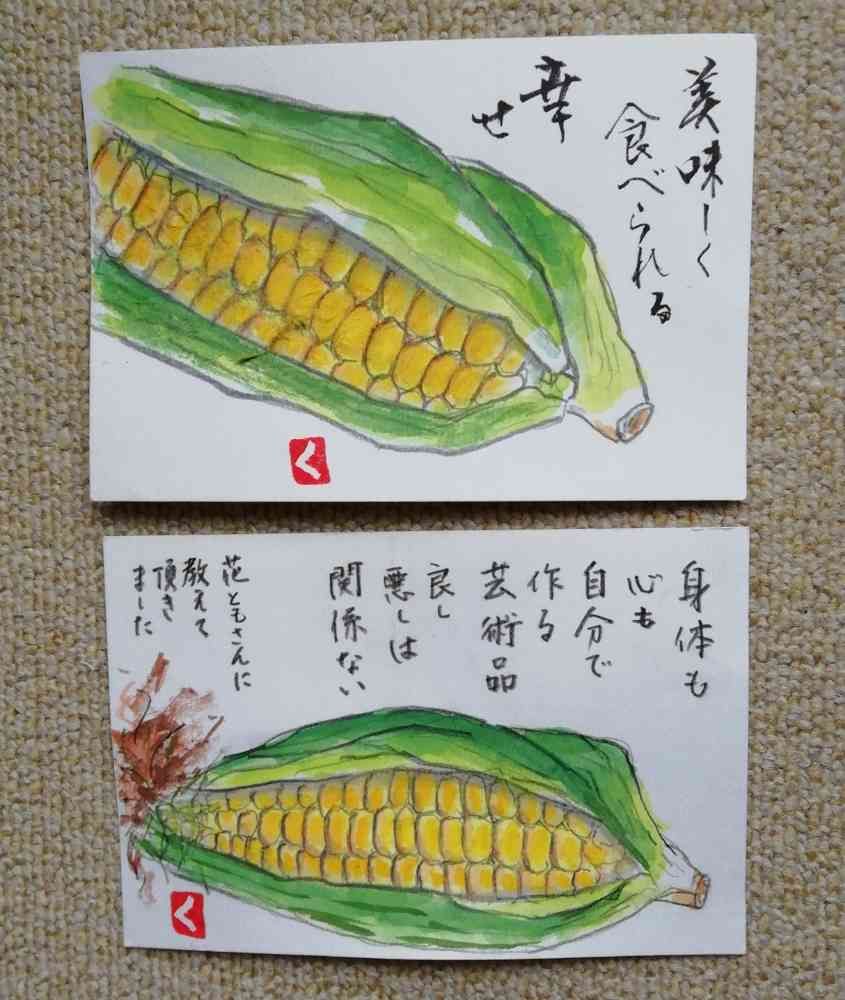 美味しく
食べられる
幸
せ
く
身体も
心も
自分で
作る
芸術品
良し
悪しは
関係ない
花ともさんに
教えて
頂き
ました
く